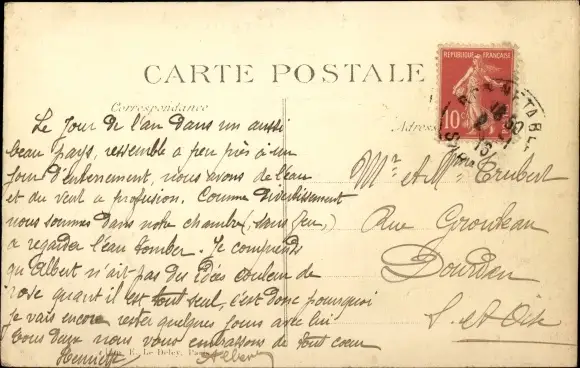 CARTE POSTALE
Correspondance
Adresse
REPUBLIQUE FRANÇAISE
10
Le Jour de l'an dans un aussi
beau pays, ressemble a peu près à un
jour d'enterrement, nous avons de l'eau
et du vent a profusion. Comme divertissement
nous sommes dans notre chambre (sans feu,)
a regarder l'eau tomber. Je comprends
qu'Albert n'ait pas des idées couleur de
rose quant il est tout seul, c'est donc pourquoi
je vais encore rester quelques jours avec lui
Tous deux nous vous embrassons de tout coeur
Henriette Albert
E. Le Deley, Paris
Mr et Me Trubert
Rue
Dourdan
S. et Oise